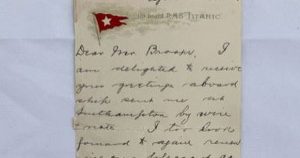 On board R.M.S. TITANIC.
Dear Mrs
I
am delighted to receive
your greetings aboard
ship sent me
Southampton by wire
& note. I too look
forward to again renew